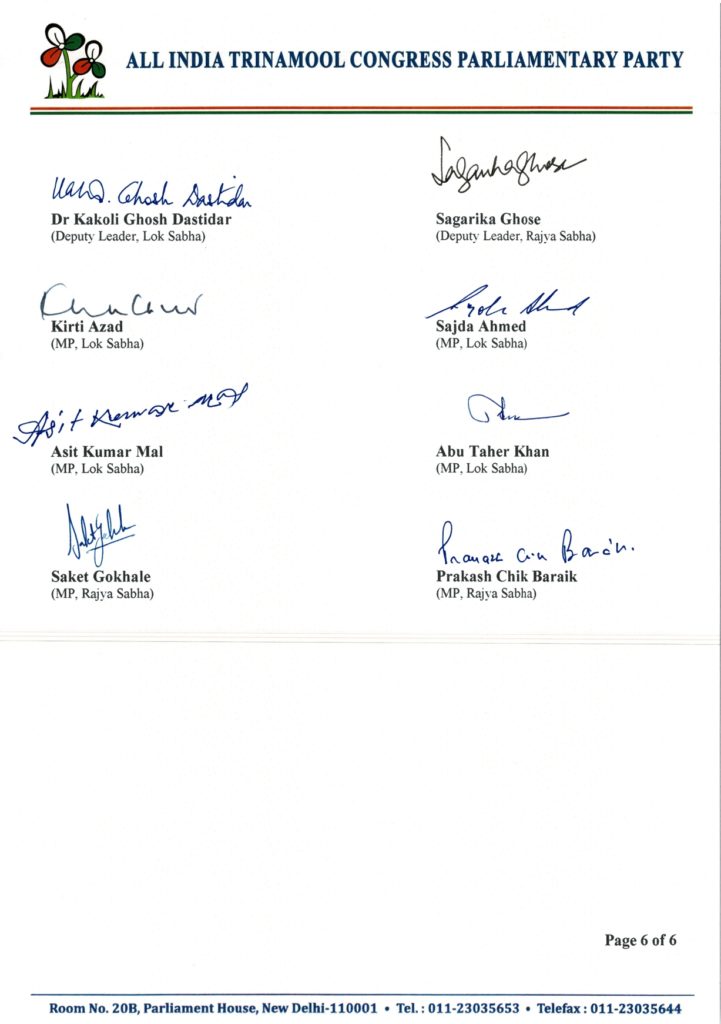 ALL INDIA TRINAMOOL CONGRESS PARLIAMENTARY PARTY
Ghosh Dastidar
Dr Kakoli Ghosh Dastidar
(Deputy Leader, Lok Sabha)
Sagarika Ghose
Sagarika Ghose
(Deputy Leader, Rajya Sabha)
Kirti Azad
(MP, Lok Sabha)
Sajda Ahmed
(MP, Lok Sabha)
Asit Kumar Mal
Asit Kumar Mal
(MP, Lok Sabha)
Abu Taher Khan
(MP, Lok Sabha)
Saket Gokhale
(MP, Rajya Sabha)
Prakash Chik Baraik
(MP, Rajya Sabha)
Page 6 of 6
Room No. 20B, Parliament House, New Delhi-110001 • Tel. : 011-23035653 • Telefax : 011-23035644